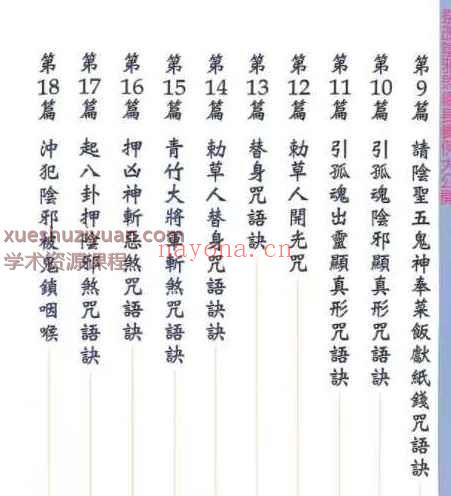 第9篇 請陰聖五鬼神奉菜飯獻紙錢咒語訣
第10篇 引孤魂陰邪顯真形咒語訣
第11篇 引孤魂出靈顯真形咒語訣
第12篇 勅草人開光咒
第13篇 替身咒語訣
第14篇 勅草人替身咒語訣訣
第15篇 青竹大將軍斬煞咒語訣
第16篇 押凶神斬惡煞咒語訣
第17篇 起八卦押陰邪煞咒語訣
第18篇 沖犯陰邪被鬼鎖咽喉
xueshuziyuan.com
学术资源课程
nayona.cn